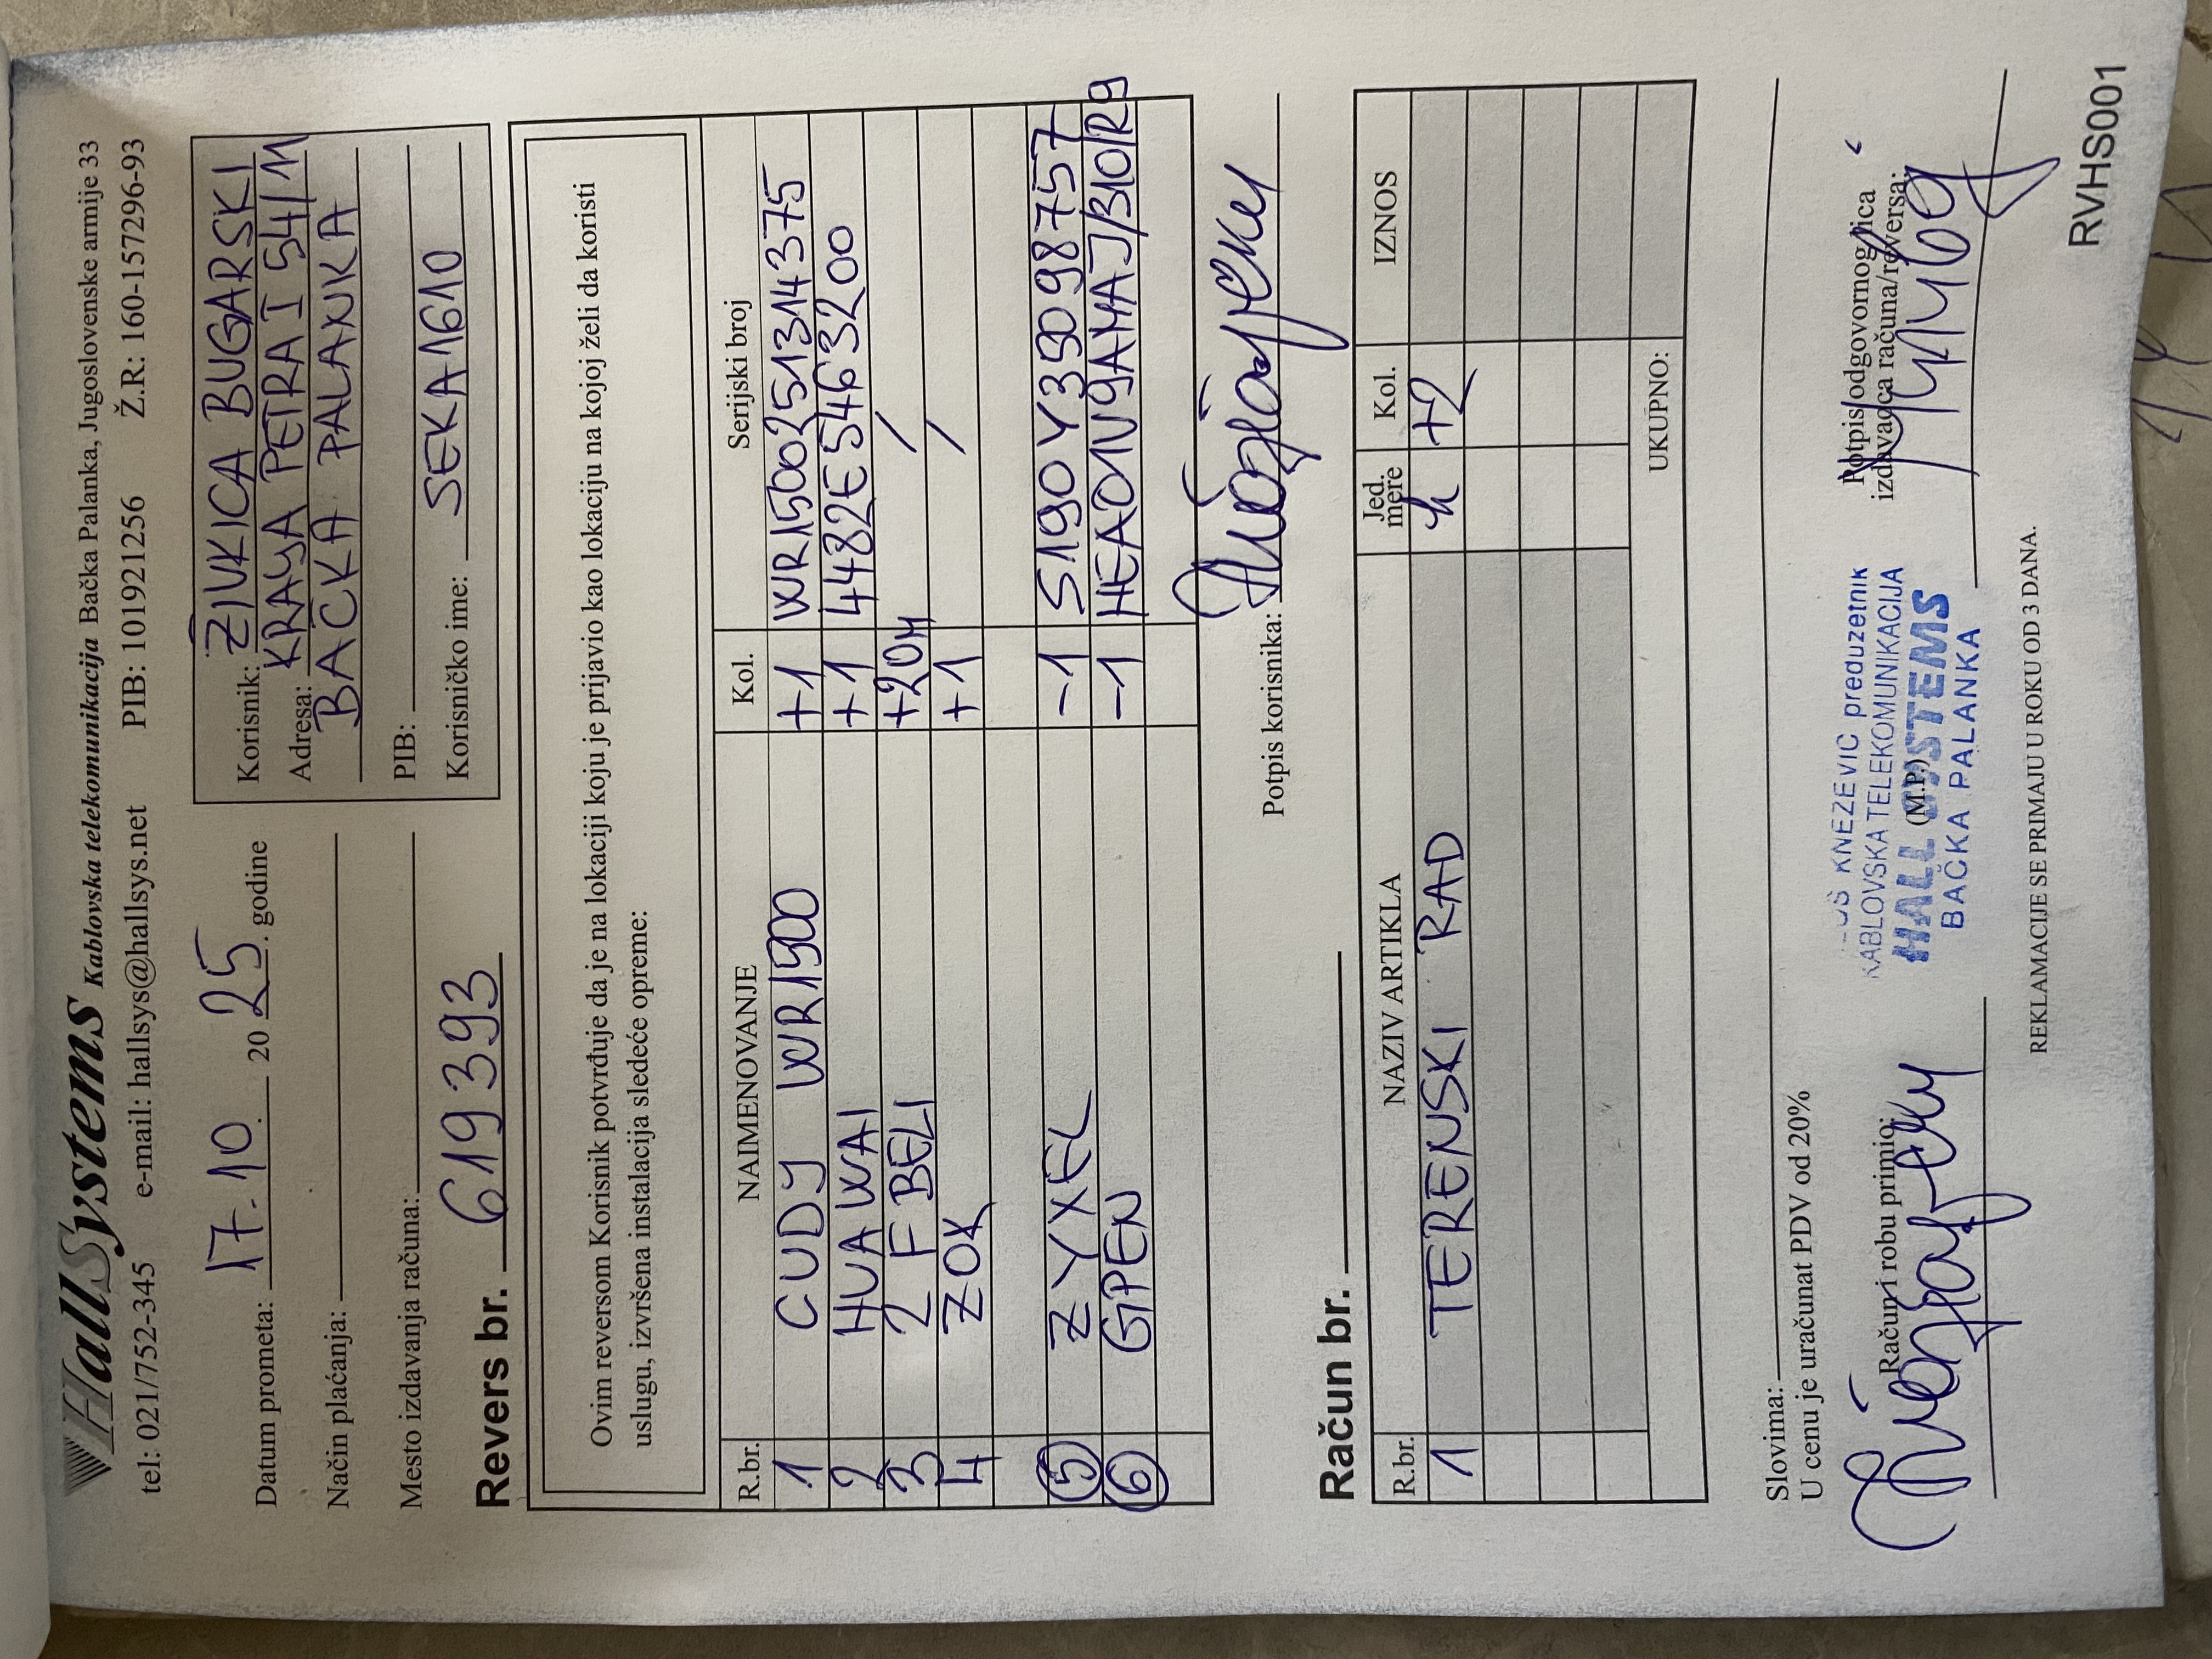 HallSystems Kablovska telekomunikacija Bačka Palanka, Jugoslovenske armije 33
tel: 021/752-345 e-mail: hallsys@hallsys.net PIB: 101921256 Ž.R.: 160-157296-93
Datum prometa: 17.10. 2025. godine
Način plaćanja:
Mesto izdavanja računa:
Korisnik: ŽIVKICA BUGARSKI
Adresa: KRALJA PETRA I 54/11
BAČKA PALANKA
PIB:
Korisničko ime: SEKA1610
Revers br. 619393
Ovim reversom Korisnik potvrđuje da je na lokaciji koju je prijavio kao lokaciju na kojoj želi da koristi
uslugu, izvršena instalacija sledeće opreme:
R.br. NAIMENOVANJE Kol. Serijski broj
1 CUDY WR1500 +1 WR1500251314375
2 HUAWAI +1 4482E5463200
3 2 F BELI +20M /
4 ZOK +1 /
5 ZYXEL -1 S190Y35098757
6 GPEN -1
Potpis korisnika:
Račun br.
R.br. NAZIV ARTIKLA Jed. mere Kol. IZNOS
1 TERENSKI RAD h +2
UKUPNO:
Slovima:
U cenu je uračunat PDV od 20%
Račun i robu primio:
KNEŽEVIĆ preduzetnik
KABLOVSKA TELEKOMUNIKACIJA
HALL SYSTEMS
(M.P.)
BAČKA PALANKA
Potpis odgovornog lica
izdavaoca računa/reversa:
REKLAMACIJE SE PRIMAJU U ROKU OD 3 DANA.
RVHS001